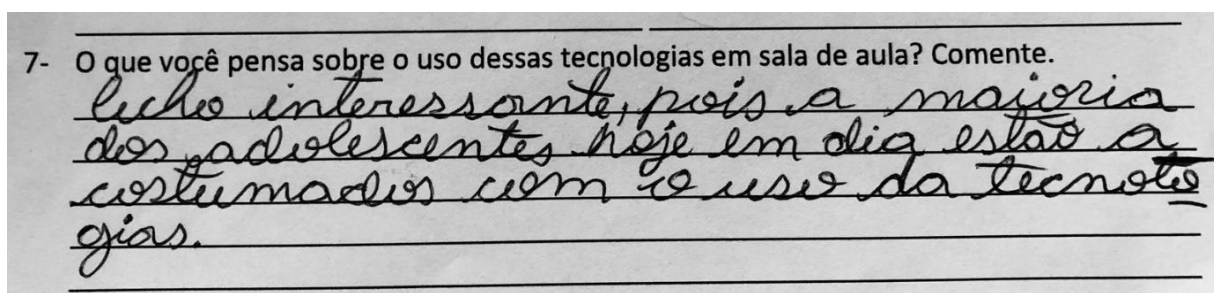 7- O que você pensa sobre o uso dessas tecnologias em sala de aula? Comente.
Acho interessante, pois a maioria
dos adolescentes hoje em dia estão a
costumados com o uso da tecnolo
gias.